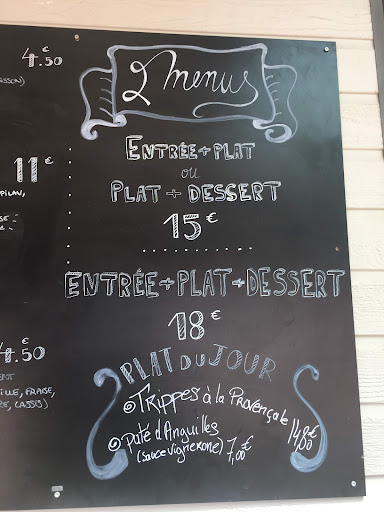 4.50€
SSON)
11€
PILAN,
4.50
ENT
ILLE, FRAISE,
RE, CASSIS)
2 menus
ENTRÉE+PLAT
ou
PLAT + DESSERT
15€
ENTRÉE+PLAT+DESSERT
18€
PLAT DU JOUR
TRIPPES à la Provençale 14,80€
Pâté d'Anguilles
(sauce vigneronne) 7,00€